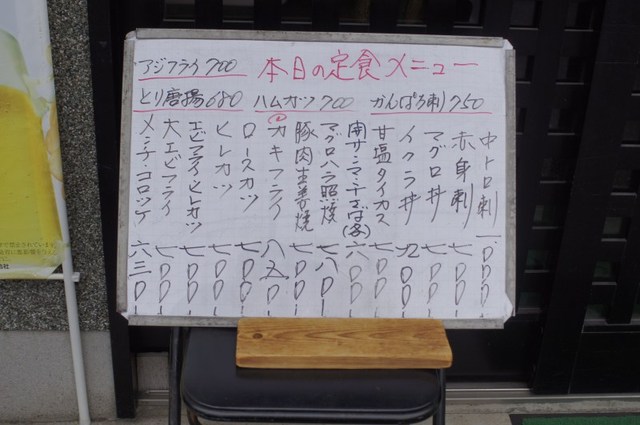 本日の定食メニュー
アジフライ700
とり唐揚680
ハムカツ700
がんばろ刺750
中トロ刺 一、〇〇〇
赤身刺 七〇〇
マグロ丼 七〇〇
イクラ丼 九〇〇
甘塩タイカス 七〇〇
(開)サンマ・チャば(各) 六〇〇
マグロハラ照焼 七八〇
豚肉生姜焼 七〇〇
カキフライ 八五〇
ロースカツ 七〇〇
ヒレカツ 七〇〇
エビフライヒレカツ 七〇〇
大エビフライ 七〇〇
メンチ・コロッケ 六三〇